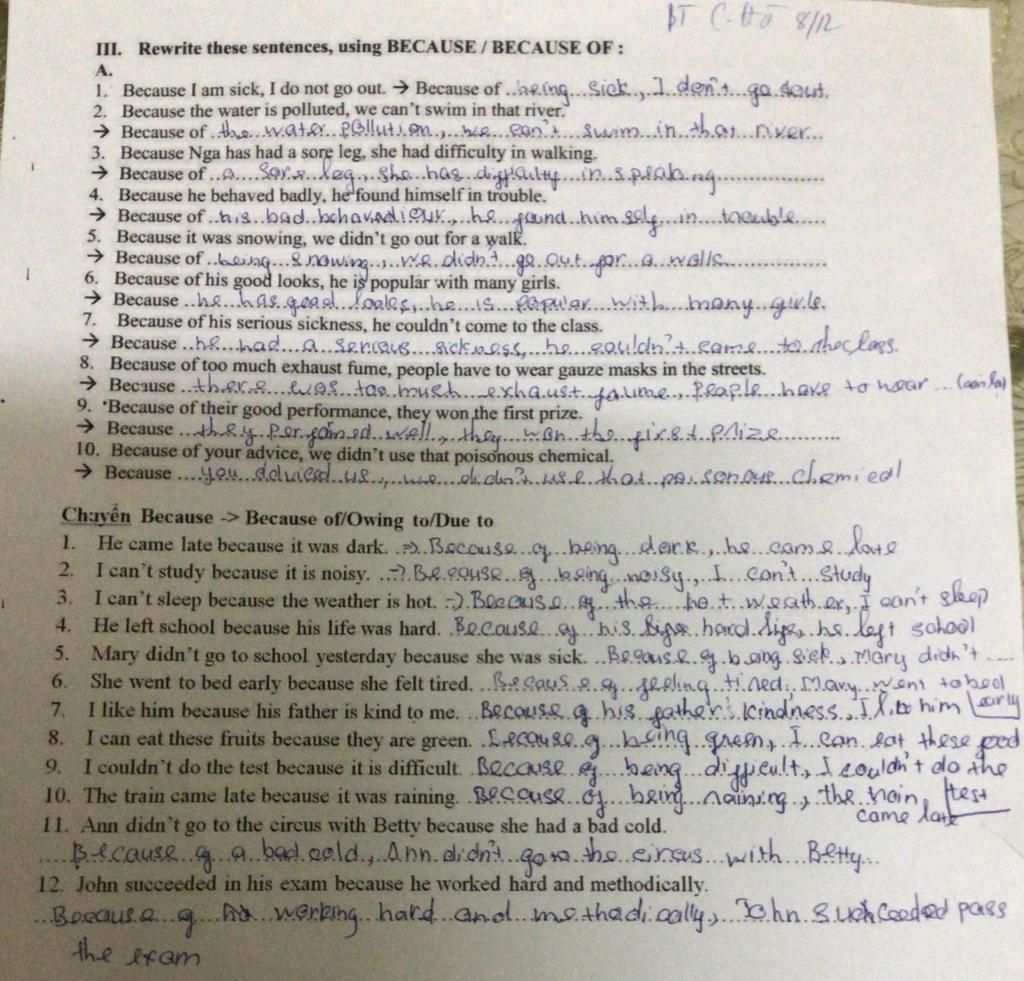 BT 8/12
III. Rewrite these sentences, using BECAUSE / BECAUSE OF :
A.
1. Because I am sick, I do not go out. → Because of ..being.. sick.., I don't.. go out.
2. Because the water is polluted, we can't swim in that river.
→ Because of ..the water pollution.., we can't.. swim in that river..
3. Because Nga has had a sore leg, she had difficulty in walking.
→ Because of ..a.... sore.. leg.., she has difficulty.. in speaking..................
4. Because he behaved badly, he found himself in trouble.
→ Because of ..his bad, he found himself in trouble.....
5. Because it was snowing, we didn't go out for a walk.
→ Because of ..being.. snowing.., we didn't go out for a walk..................
6. Because of his good looks, he is popular with many girls.
→ Because ..he has good looks, he is popular with many girls.
7. Because of his serious sickness, he couldn't come to the class.
→ Because ..he had a serious sickness, he couldn't come to the class.
8. Because of too much exhaust fume, people have to wear gauze masks in the streets.
→ Because ..there was too much exhaust faume, people have to wear ...
9. Because of their good performance, they won the first prize.
→ Because ..they performed well.., they won the first prize...........
10. Because of your advice, we didn't use that poisonous chemical.
→ Because ....you adviced us.., we didn't use that poisonous chemical
Chuyển Because -> Because of/Owing to/Due to
1. He came late because it was dark. ..=> Because of being dark, he came late
2. I can't study because it is noisy. ..-> Because of being noisy, I can't study
3. I can't sleep because the weather is hot. -> Because of the hot weather, I can't sleep
4. He left school because his life was hard. Because of his hard life, he left school
5. Mary didn't go to school yesterday because she was sick. ..Because of being sick, Mary didn't ....
6. She went to bed early because she felt tired. ..Because of feeling tired, Mary went to bed
7. I like him because his father is kind to me. ..Because of his father's kindness, I like him early
8. I can eat these fruits because they are green. ..Because of being green, I can eat these food
9. I couldn't do the test because it is difficult. Because of being difficult, I couldn't do the
10. The train came late because it was raining. ..Because of being raining, the train test
came late
11. Ann didn't go to the circus with Betty because she had a bad cold.
.....Because of a bad cold, Ann didn't go to the circus with Betty...
12. John succeeded in his exam because he worked hard and methodically.
..Because of working hard and methodically, John pass
the exam